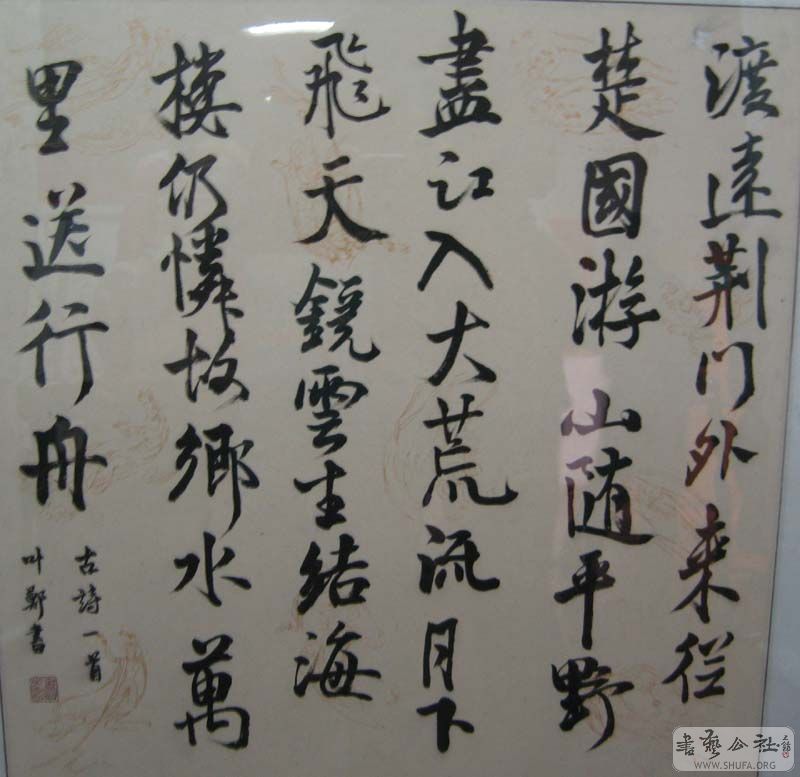 渡遠荆门外来從
楚國游山随平野
盡江入大荒流月下
飛天鏡雲生结海
樓仍憐故鄉水萬
里送行舟
古詩一首
叶鄭書
書藝公社
WWW.SHUFA.ORG